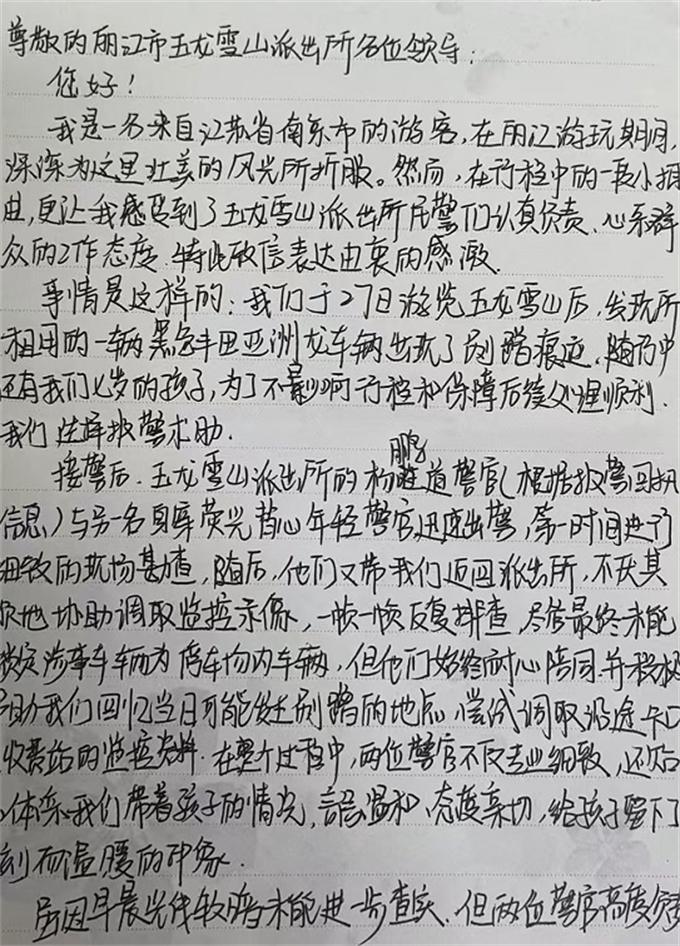 尊敬的丽江市玉龙雪山派出所各位领导：
您好！
我是一名来自江苏省南京市的游客，在丽江游玩期间，
深深为这里壮美的风光所折服。然而，在行程中的一段小插
曲，更让我感受到了玉龙雪山派出所民警们认真负责、心系群
众的工作态度，特此致信表达由衷的感激。
事情是这样的：我们于27日游览玉龙雪山后，发现所
租用的一辆黑色丰田亚洲龙车辆出现了剐蹭痕迹。随行中
还有我们七岁的孩子，为了不影响行程和保障后续处理顺利，
我们选择报警求助。
接警后，玉龙雪山派出所的杨鹏道警官（根据报警回执
信息）与另一名身穿荧光背心年轻警官迅速出警，第一时间进行
细致的现场勘查，随后，他们又带我们返回派出所，不厌其
烦地协助调取监控录像，一帧一帧反复排查，尽管最终未能
锁定涉事车辆为停车场内车辆，但他们始终耐心陪同，并积极
协助我们回忆当日可能发生剐蹭的地点，尝试调取沿途卡口
收费站的监控资料。在整个过程中，两位警官不仅专业细致，还贴
心体系我们带着孩子的情况，言语温和、态度亲切，给孩子留下了
刻而温暖的印象。
虽因早晨光线较暗未能进一步查实，但两位警官高度负责